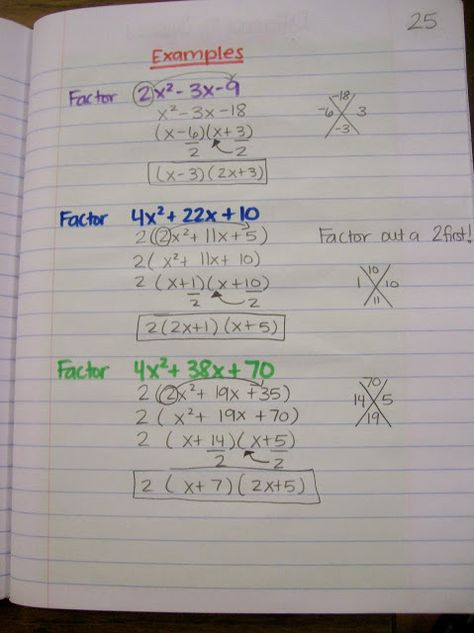 25
Examples
Factor 2x² - 3x - 9
x² - 3x - 18
(x - 6)(x + 3)
2 2
(x - 3)(2x + 3)
-18
-6 3
-3
Factor 4x² + 22x + 10
2(2x² + 11x + 5) Factor out a 2 first!
2(x² + 11x + 10)
2 (x + 1)(x + 10)
2 2
2(2x + 1)(x + 5)
10
1 10
11
Factor 4x² + 38x + 70
2 (2x² + 19x + 35)
2 (x² + 19x + 70)
2 (x + 14)(x + 5)
2 2
2 (x + 7)(2x + 5)
70
14 5
19